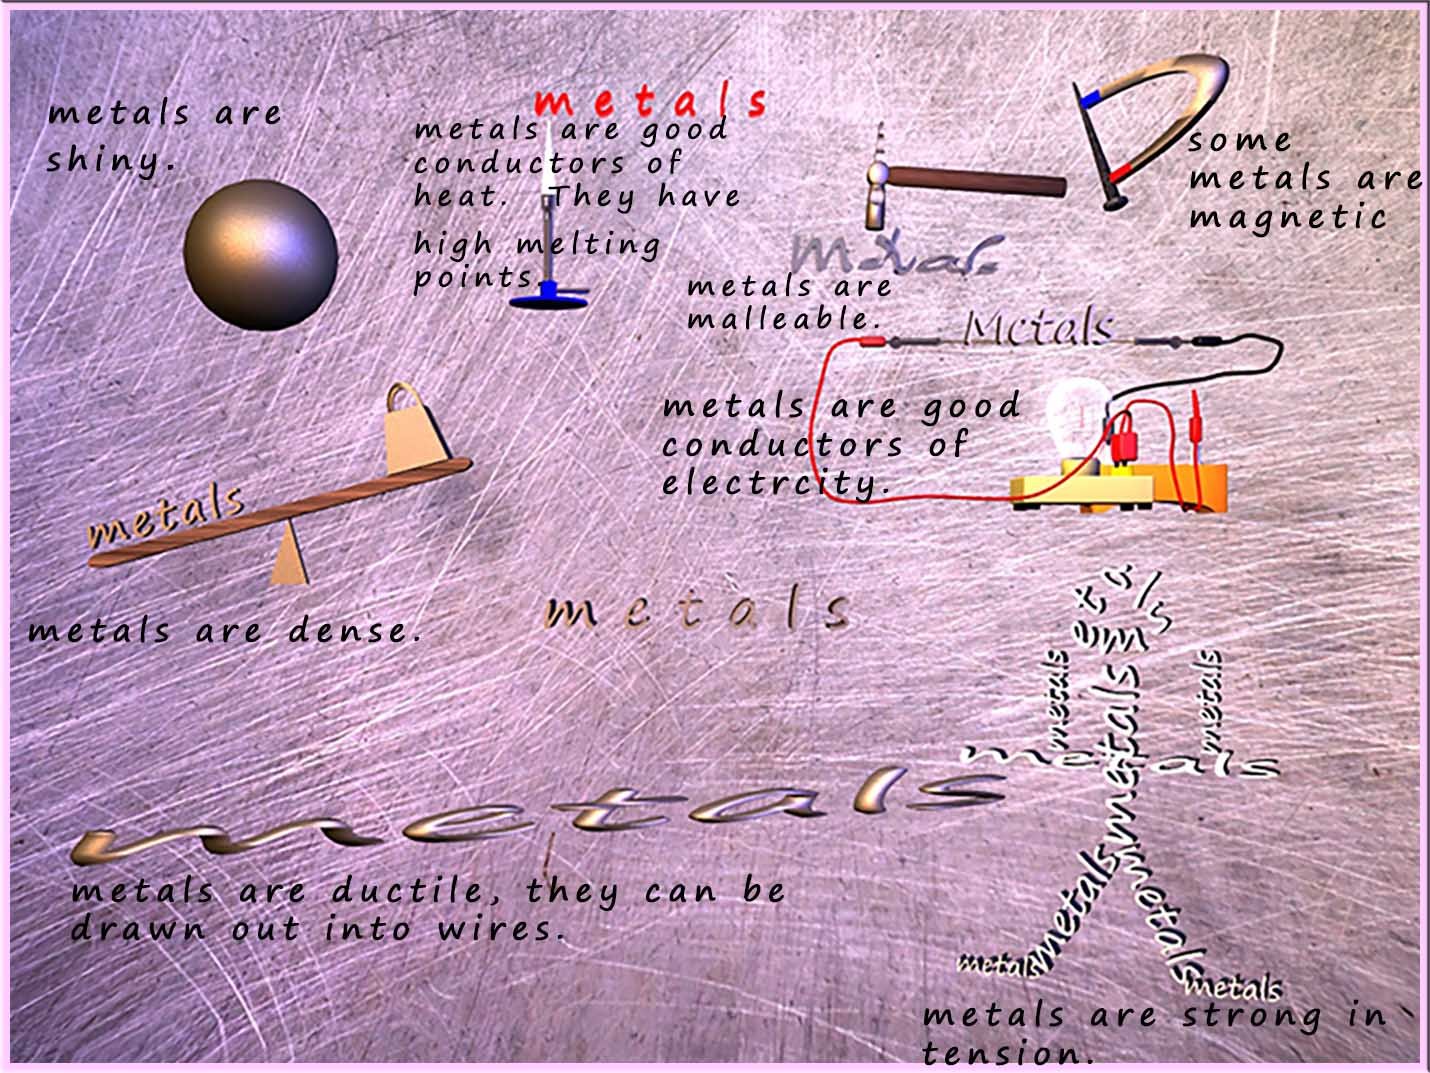 metals are
shiny.
metals
metals are good
conductors of
heat. They have
high melting
points.
metals
metals are
malleable.
some
metals are
magnetic
Metals
metals are good
conductors of
electrcity.
metals
metals are dense.
metals
metals
metals are ductile, they can be
drawn out into wires.
metals
metals
metals
metals
metals
metals
metals
metals
metals
metals
metals are strong in
tension.